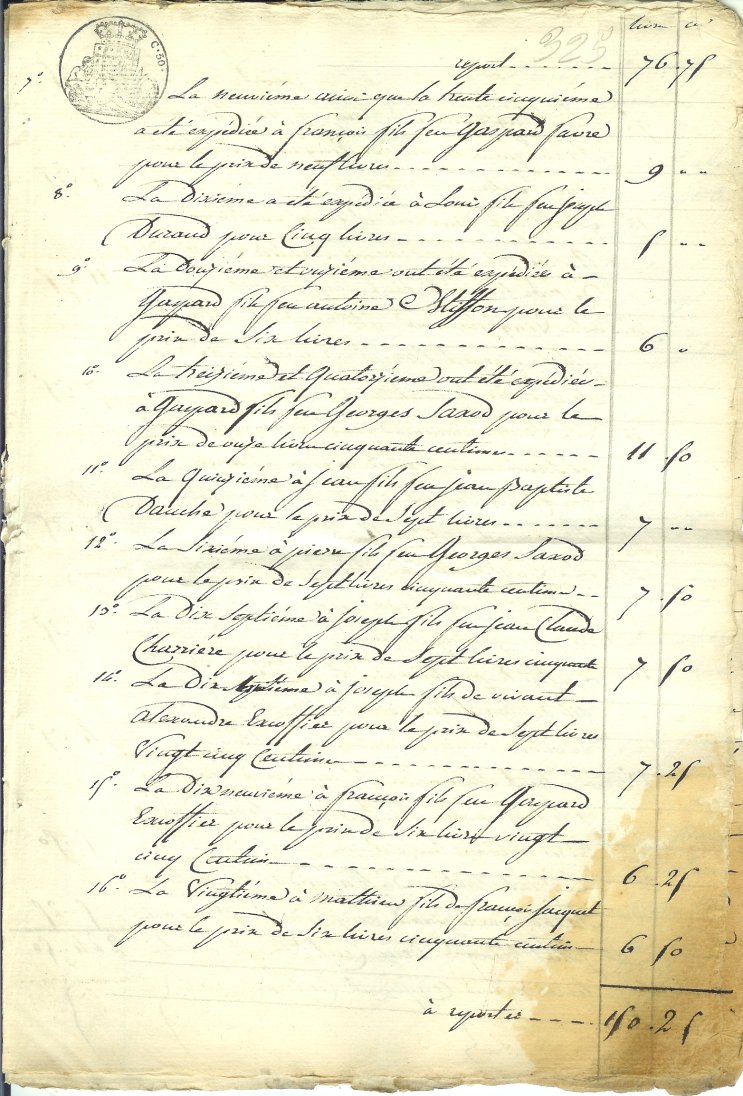 livres cs
C. 50.
325
report - - - - - - - 76 . 75
7° La neuvième ainsi que la trente cinquième
a été expédiée à françois fils feu Gaspard favre
pour le prix de neuf livres - - - - - - - 9 " "
8° La Dixième a été expédiée à Louis fils feu joseph
Durand pour Cinq livres - - - - - - - 5 " "
9° La Douzième et onzième ont été expédiées à -
Gaspard fils feu antoine pour le
prix de Six livres - - - - - - - 6 "
10° La treizième et Quatorzième ont été expédiées -
à Gaspard fils feu Georges Saxod pour le
prix de onze livres cinquante centimes - - - - - 11 . 50
11° La Quinzième à Jean fils feu jean Baptiste
Dauche pour le prix de Sept livres - - - - - - - 7 " "
12° La Sixième à pierre fils feu Georges Saxod
pour le prix de Sept livres cinquante centimes - - 7 . 50
13° La Dix Septième à joseph fils feu jean Claude
Charrière pour le prix de Sept livres cinquante 7 50
14° La Dix à joseph fils de vivant -
alexandre Excoffier pour le prix de Sept livres
Vingt cinq Centimes - - - - - - - 7 . 25
15° La Dix neuvième à françois fils feu Gaspard
Excoffier pour le prix de Six livres vingt -
cinq Centimes - - - - - - - 6 . 25
16° La Vingtième à mathieu fils de françois jacquet
pour le prix de Six livres cinquante centimes - 6 50
à reporter - - - - 150 . 25